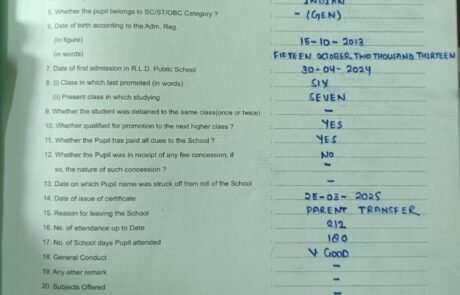 INDIAN
5. Whether the pupil belongs to SC/ST/OBC Category ? : - (GEN)
6. Date of birth according to the Adm. Reg.
(in figure) : 15-10-2013
(in words) : FIFTEEN OCTOBER TWO THOUSAND THIRTEEN
7. Date of first admission in R.L.D. Public School : 30-04-2024
8. (i) Class in which last promoted (in words) : SIX
(ii) Present class in which studying : SEVEN
9. Whether the student was detained to the same class(once or twice) : -
10. Whether qualified for promotion to the next higher class ? : YES
11. Whether the Pupil has paid all dues to the School ? : YES
12. Whether the Pupil was in receipt of any fee concession, if : NO
so, the nature of such concession ? : -
13. Date on which Pupil name was struck off from roll of the School : -
14. Date of issue of certificate : 25-03-2025
15. Reason for leaving the School : PARENT TRANSFER
16. No. of attendance up to Date : 212
17. No. of School days Pupil attended : 180
18. General Conduct : V. GOOD
19. Any other remark : -
20. Subjects Offered : -